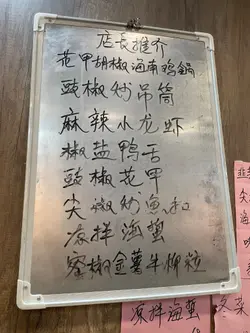 店長推介
花甲胡椒海南鸡鍋
豉椒炒吊筒
麻辣小龙虾
椒盐鸭舌
豉椒花甲
尖椒炒魚扣
凉拌海蜇
黑椒金薯牛柳粒
凉拌海蜇
冬菜